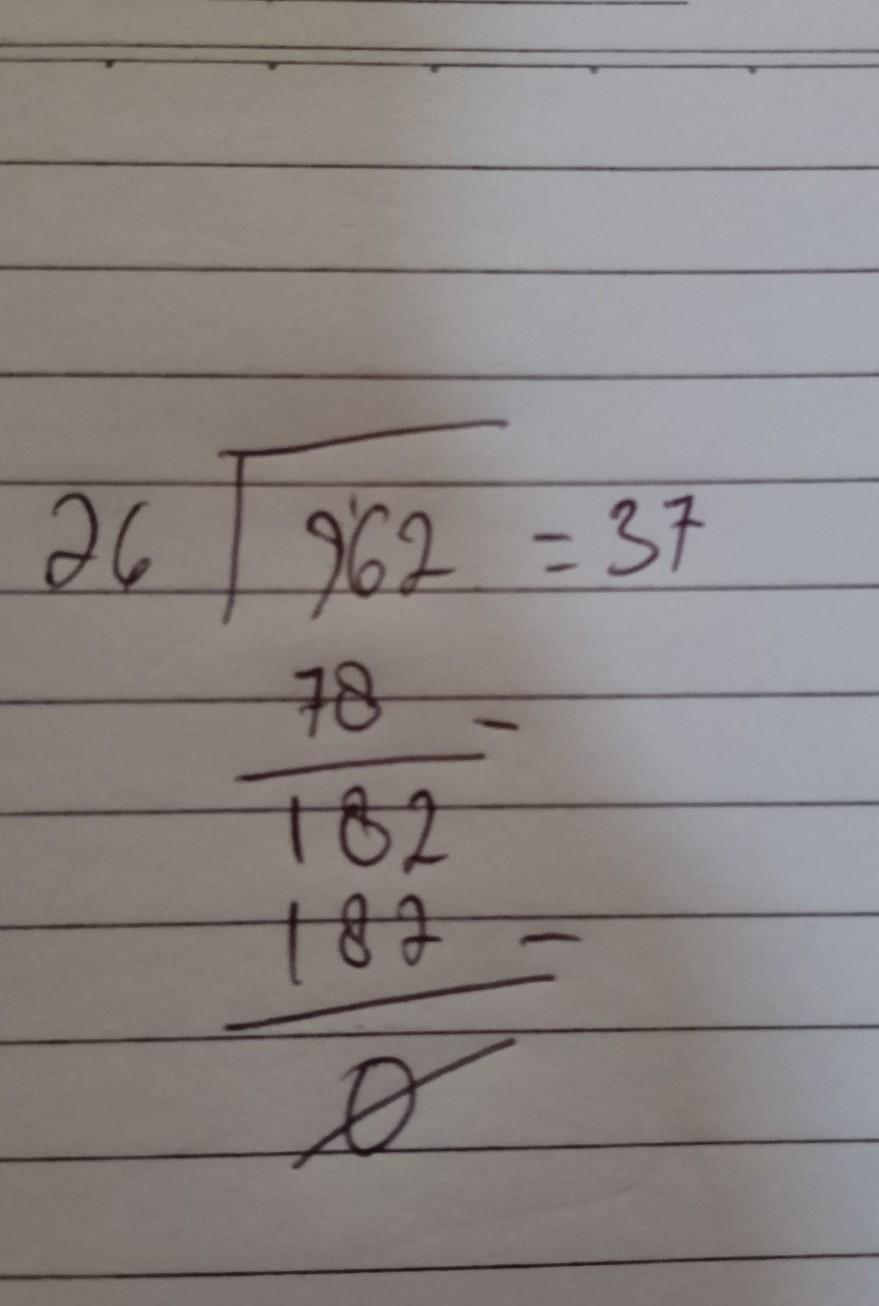 26 962 = 37
78 -
182
182 -
0